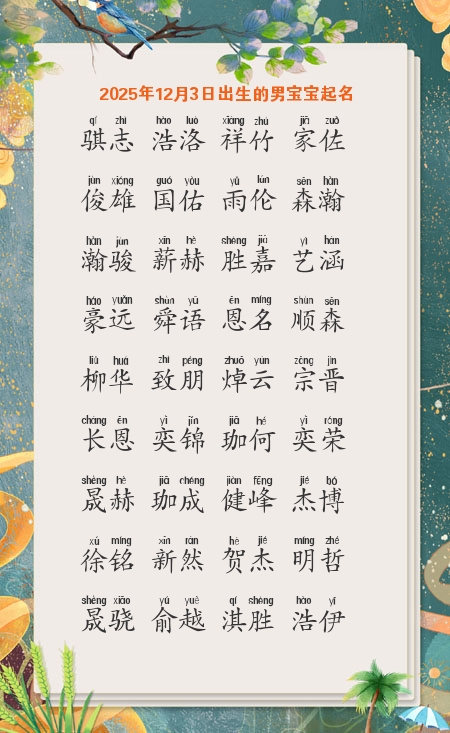 2025年12月3日出生的男宝宝起名
qí zhì hào luò xiáng zhú jiā zuǒ
骐志 浩洛 祥竹 家佐
jùn xióng guó yòu yǔ lún sēn hàn
俊雄 国佑 雨伦 森瀚
hàn jùn xīn hè shèng jiā yì hán
瀚骏 薪赫 胜嘉 艺涵
háo yuǎn shùn yǔ ēn míng shùn sēn
豪远 舜语 恩名 顺森
liǔ huá zhì péng zhuō yún zōng jìn
柳华 致朋 焯云 宗晋
cháng ēn yì jǐn jiā hé yì róng
长恩 奕锦 珈何 奕荣
shèng hè jiā chéng jiàn fēng jié bó
晟赫 珈成 健峰 杰博
xú míng xīn rán hè jié míng zhé
徐铭 新然 贺杰 明哲
shèng xiāo yú yuè qí shèng hào yī
晟骁 俞越 淇胜 浩伊